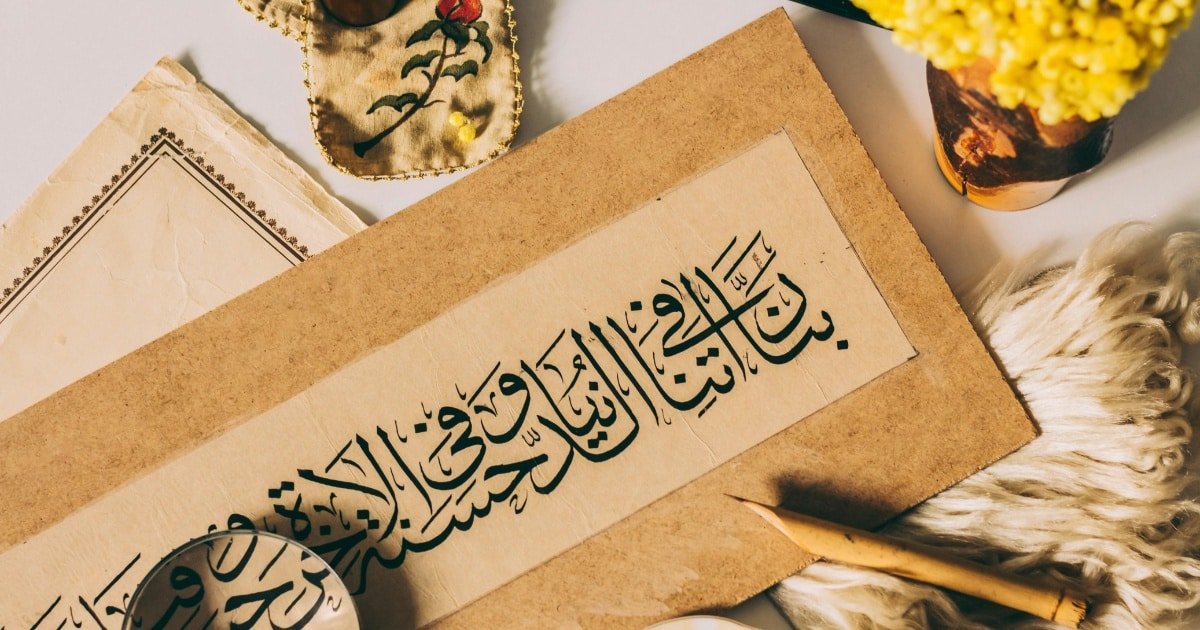 ربنا اتنا في الدنيا حسنة وفي الاخرة